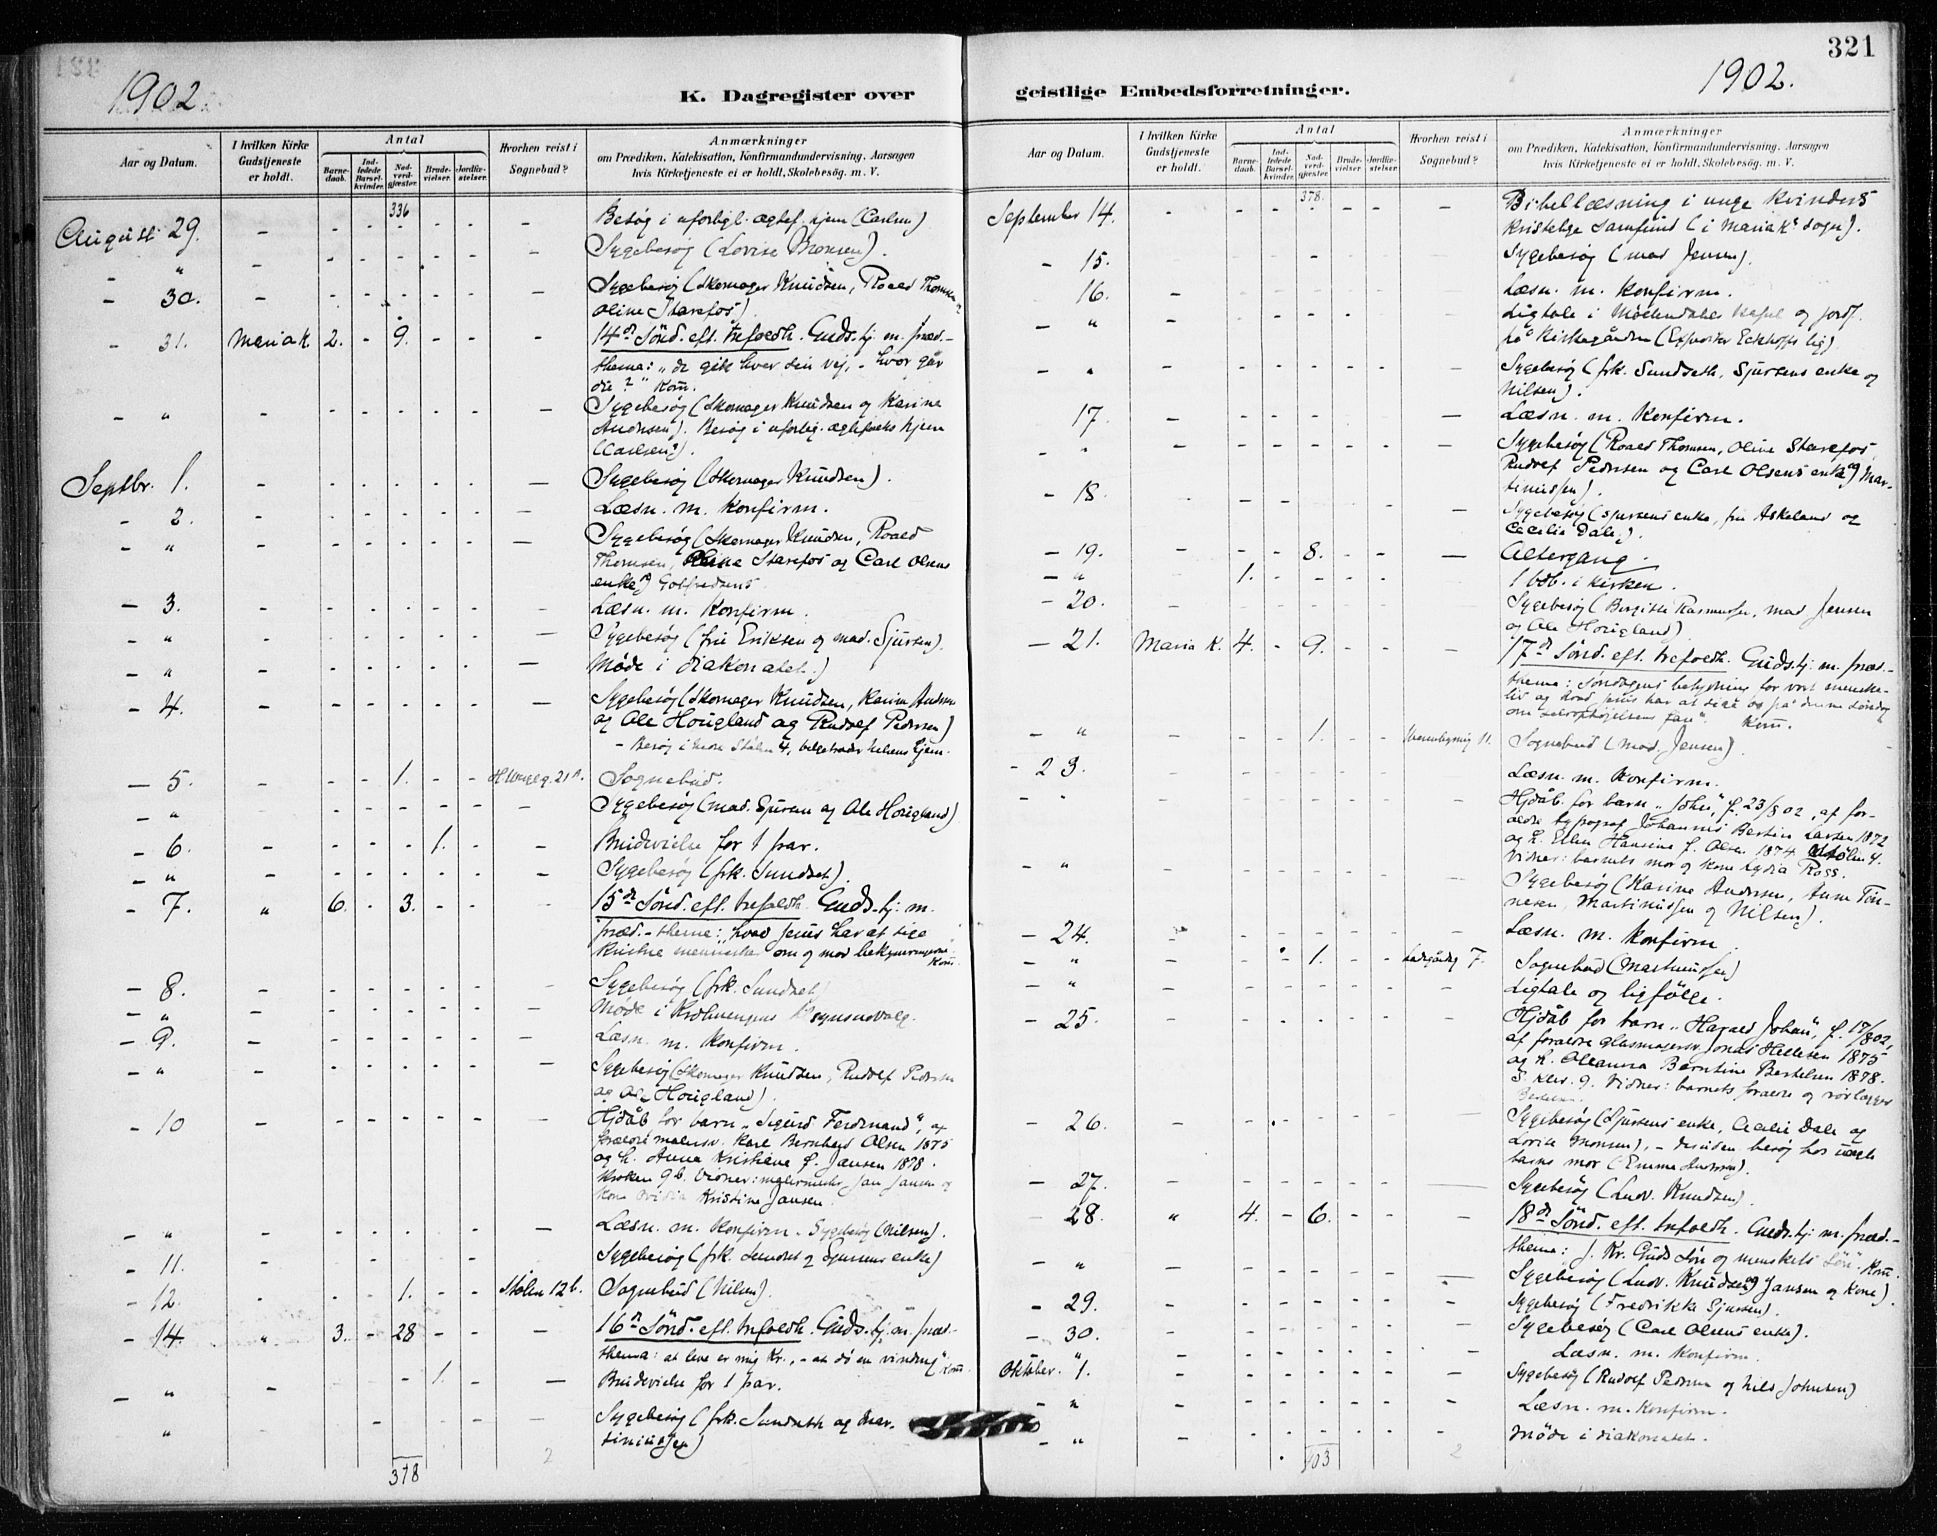 321
1902. 1902.
K. Dagregister over geistlige Embedsforretninger.
Aar og Datum.
I hvilken Kirke Gudstjeneste er holdt.
Antal
Barnedaab.
Indledede Barselkvinder.
Nadverdgjæster.
Brudevielser.
Jordfæstelser.
Hvorhen reist i Sognebud?
Anmærkninger
om Prædiken, Katekisation, Konfirmandundervisning. Aarsagen
hvis Kirketjeneste ei er holdt, Skolebesøg. m. V.
336
August 29. - - - - - - - Besøg i uforligl. ægtef. hjem (Carlsen)
- " - - - - - - - Sygebesøg (Lovise Monsen).
- 30. - - - - - - - Sygebesøg (Skomager Knudsen, Roald Thomsen
Oline Starefos)
- 31. Maria K. 2. - 9. - - - 14de Sönd. eft. trefoldh. Guds.tj. m. præd.-
thema: "de gik hver sin vej, - hvor går
du?" Kom.
- " - - - - - - - Sygebesøg (Skomager Knudsen og Karine
Andersen). Besøg i uforlig. ægtefolks hjem
(Carlsen).
Septbr. 1. - - - - - - - Sygebesøg (Skomager Knudsen).
- 2. - - - - - - - Læsn. m. Konfirm.
- " - - - - - - - Sygebesøg (Skomager Knudsen, Roald
Thomsen, Starefos og Carl Olsens
enke)
- 3. - - - - - - - Læsn. m. Konfirm.
- " - - - - - - - Sygebesøg (fru Eriksen og mad. Sjursen).
- " - - - - - - - Møde i diakonatet.
- 4. - - - - - - - Sygebesøg (Skomager Knudsen, Karine Andersen
og Ole Hougland og Rudolf Pedersen)
- Besøg i
- 5. - - - 1. - - 21 Sognebud.
- " - - - - - - - Sygebesøg (mad. Sjursen og Ole Hougland)
- 6. - - - - 1. - - Brudevielse for 1 par.
- " - - - - - - - Sygebesøg (frk. Sundset).
- 7. " 6. - 3. - - - 15de Sönd. eft. trefoldh. Guds.tj. m.
præd. - thema: "hvad Jesus har at sige
kristne mennesker om og mod bekymringerne"
Kom.
- 8. - - - - - - - Sygebesøg (frk. Sundset)
- " - - - - - - - Møde i
- 9. - - - - - - - Læsn. m. Konfirm.
- " - - - - - - - Sygebesøg (Skomager Knudsen, Rudolf Pedersen
og Ole Hougland).
- 10 - - - - - - - Hjdåb for barn "Sigurd Ferdinand", af
forældre malersv. Karl Bernhard Olsen 1875
og h. Anna Kristiane f. Jansen 1878.
Kroken 9b. Vidner: malermester Jan Jansen og
kone Kristine Jansen.
- " - - - - - - - Læsn. m. Konfirm. - Sygebesøg (Nilsen).
- 11. - - - - - - - Sygebesøg (frk. Sundset og Sjursens enke)
- 12. - - - 1. - - Stølen 12 b. Sognebud (Nilsen).
- 14. " 3. - 28 - - - 16de Sönd. eft. trefoldh. Guds.tj. m. præd.-
thema: at leve er mig Kr., - at dø en vinding" Kom.
- " - - - - 1. - - Brudevielse for 1 par.
" - - Sygebesøg (frk. Sundseth og Mar-
tinussen)
378
Aar og Datum.
I hvilken Kirke Gudstjeneste er holdt.
Antal
Barnedaab.
Indledede Barselkvinder.
Nadverdgjæster.
Brudevielser.
Jordfæstelser.
Hvorhen reist i Sognebud?
Anmærkninger
om Prædiken, Katekisation, Konfirmandundervisning. Aarsagen
hvis Kirketjeneste ei er holdt. Skolebesøg. m. V.
378.
September 14. - - - - - - - Bibellæsning i unge kvinders
kristelige Samfund (i Mariak's sogn).
- 15. - - - - - - - Sygebesøg (mad Jensen).
- 16. - - - - - - - Læsn. m. Konfirm.
- " - - - - - - - Ligtale i Møllendals kapel og jordf.
på kirkegården (Eckhoffs lig)
- " - - - - - - - Sygebesøg (frk. Sundseth, Sjursens enke og
Nilsen).
- 17. - - - - - - - Læsn. m. Konfirm.
- " - - - - - - - Sygebesøg (Roald Thomsen, Oline Starefos,
Rudolf Pedersen og Carl Olsens enke og Mar-
tinussen).
- 18. - - - - - - - Sygebesøg (Sjursens enke, fru Askeland og
Cecilia Dale).
- 19. - - - 8. - - - Altergang.
- " 1. - - - - 1 bdb. i kirken.
- 20. Sygebesøg (Birgitte Rasmussen, mad Jensen
og Ole Hougland)
- 21. Maria K. 4. - 9. - - - 17de Sönd. eft. trefoldh. Guds.tj. m. præd.-
thema: Søndagens betydning for vort menneske-
liv og hvad Jesus har at sige os på denne søndag
om selvophøjelsens fare". Kom.
- " - - - 1. - - 11. Sognebud (mad. Jensen)
- 23. - - - - - - - Læsn. m. Konfirm.
- " - - - - - - - Hjdåb. for barn "John", f. 23/8 02, af for-
ældre typograf Johannes Bertin Larsen 1872
og h. Ellen Hansine f. Olsen 1874 Stølen 4.
Vidner: barnets mor og kone Lydia Ross.
- " - - - - - - - Sygebesøg (Karine Andersen, Anne Tön-
nesen, Martinussen og Nilsen).
- 24. - - - - - - - Læsn. m. Konfirm.
- " - - - 1. - - Ladegårdsg 7. Sognebud (Martinussen)
- " - - - - - - - Ligtale og ligfølge.
- 25. - - - - - - - Hjdåb for barn "Harald Johan", f. 17/8 02,
af forældre glasmagersv. Jonas Hellesen 1875
og h. Oleanna Berntine Bertelsen 1878.
9. Vidner: barnets forældre og rørlægger
- 26. - - - Sygebesøg (Sjursens enke, Cecilie Dale og
Lovise Monsen), - desuden besøg hos uægte
barns mor (Emma
- 27. - - - - - - - Sygebesøg (Ludv. Knudsen).
- 28. " 4. - 6. - - - 18de Sönd. eft. trefoldh. Guds.tj. m. præd.-
thema: J. Kr. Guds Søn og menskets Søn". Kom.
- " - - - - - - - Sygebesøg (Ludv. Knudsen og Jansen og kone)
- 29. - - - - - - - Sygebesøg (Fredrikke Sjursen).
- 30. - - - - - - - Sygebesøg (Carl Olsens enke).
" - - - - - - - Læsn. m. Konfirm.
Oktober 1. - - - - - - - Sygebesøg (Rudolf Pedersen og Nils Johnsen)
- " - - - - - - - Læsn. m. Konfirm.
- " - - - - - - - Møde i diakonatet.
403